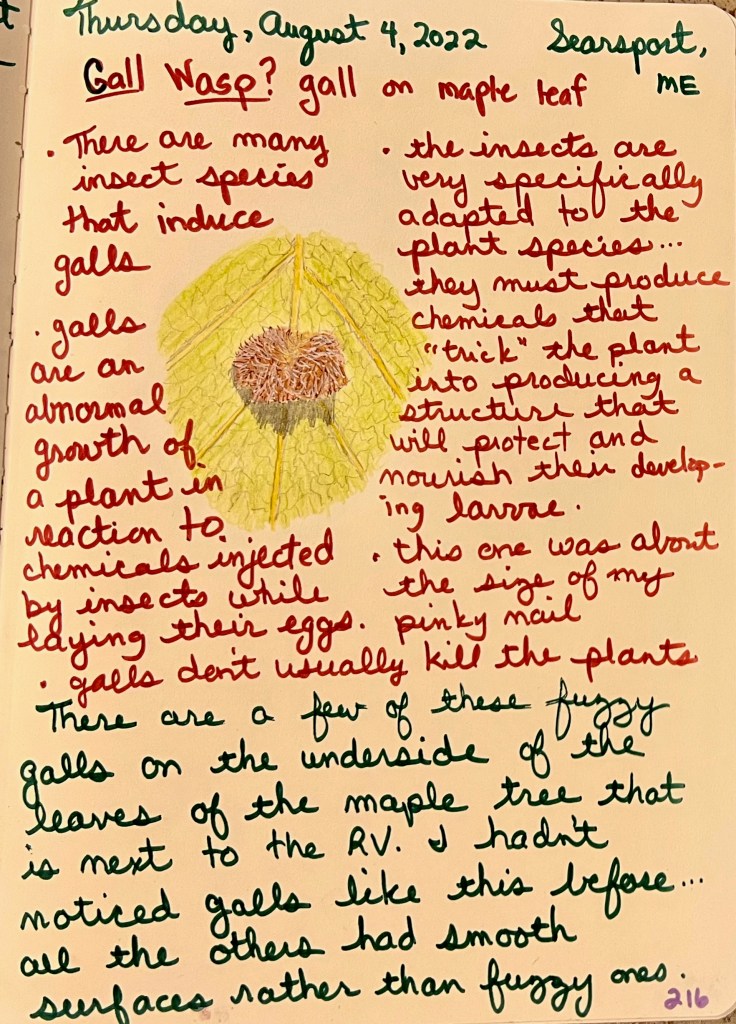 Thursday, August 4, 2022 Searsport, ME
Gall Wasp? gall on maple leaf
• There are many
insect species
that induce
galls
• galls
are an
abnormal
growth of
a plant in
reaction to
chemicals injected
by insects while
laying their eggs.
• the insects are
very specifically
adapted to the
plant species...
they must produce
chemicals that
"trick" the plant
into producing a
structure that
will protect and
nourish their develop-
ing larvae.
• this one was about
the size of my
pinky nail
• galls don't usually kill the plants
There are a few of these fuzzy
galls on the underside of the
leaves of the maple tree that
is next to the RV. I hadn't
noticed galls like this before...
all the others had smooth
surfaces rather than fuzzy ones.
216